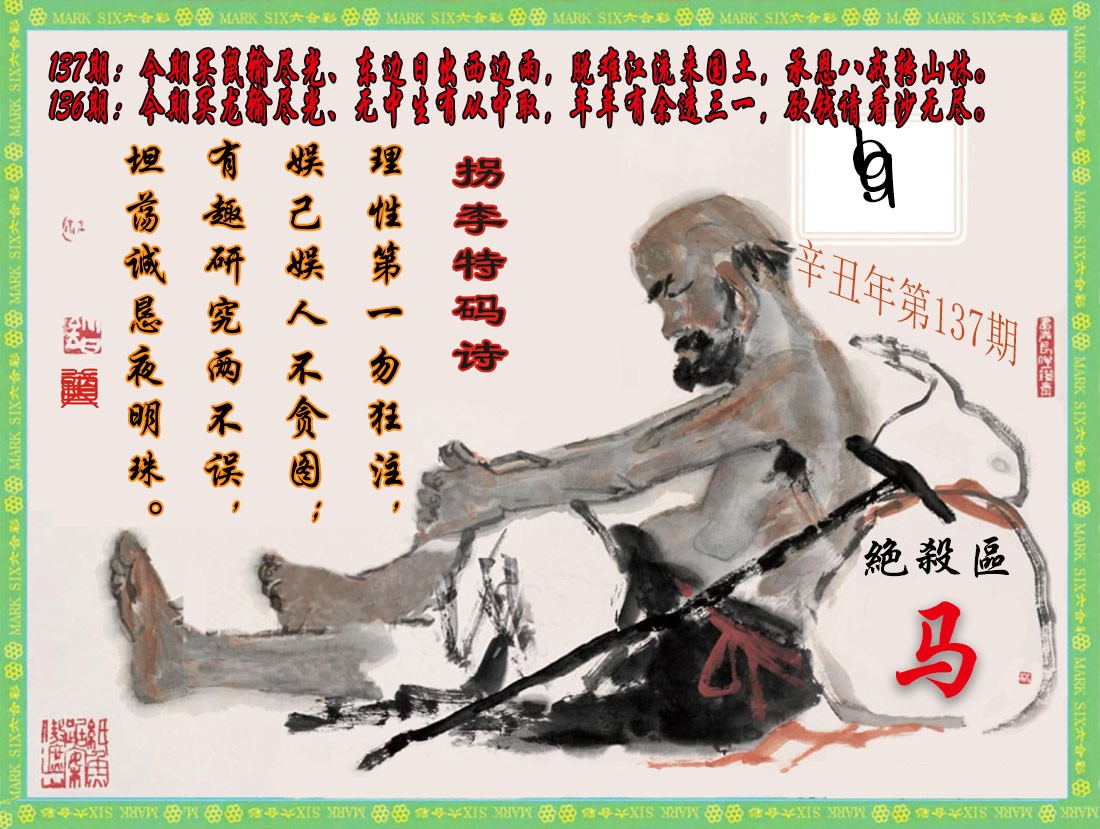 MARK SIX六合彩 MARK SIX六合彩 MARK SIX六合彩 MARK SIX六合彩 MARK SIX六合彩 MARK SIX六合彩
137期：今期买鼠输尽光、东边日出西边雨，脱难江流来国土，承恩八戒转山林。
136期：今期买龙输尽光、无中生有从中取，年年有余遗三一，欲钱请看沙无尽。
拐李特码诗
理性第一勿狂注，
娱己娱人不贪图；
有趣研究两不误，
坦荡诚恳夜明珠。
辛丑年第137期
絶殺區
马